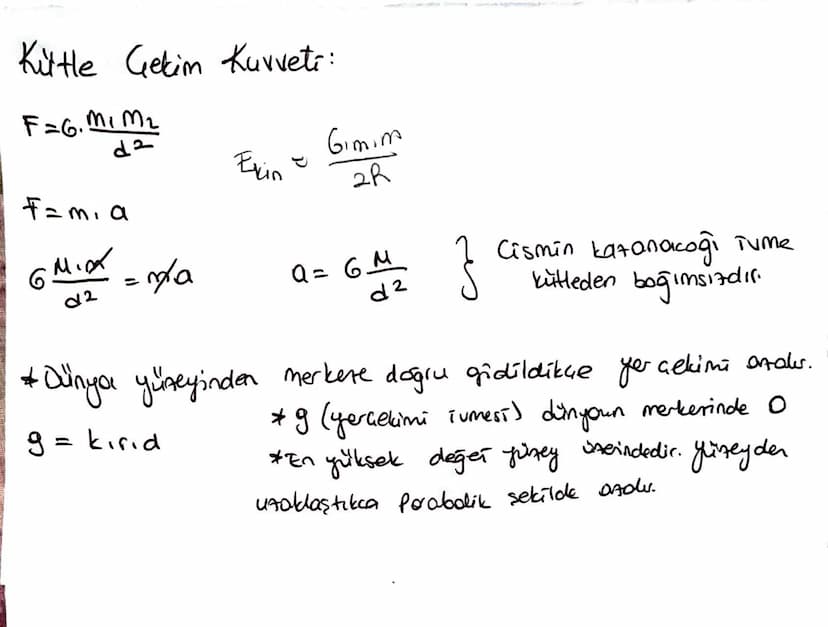 Kütle Çekim Kuvveti:
F=G.m₁m₂/d²
Ekin = G.m.m/2R
F=m.a
G M.m/d² = ma
a= G M/d² } Cismin kazanacağı ivme
kütleden bağımsızdır.
* Dünya yüzeyinden merkeze doğru gidildikçe yer çekimi azalır.
* g (yerçekimi ivmesi) dünyanın merkezinde 0
g = k.r.d
*En yüksek değer yüzey üzerindedir. Yüzeyden
uzaklaştıkca Parabolik şekilde azalır.